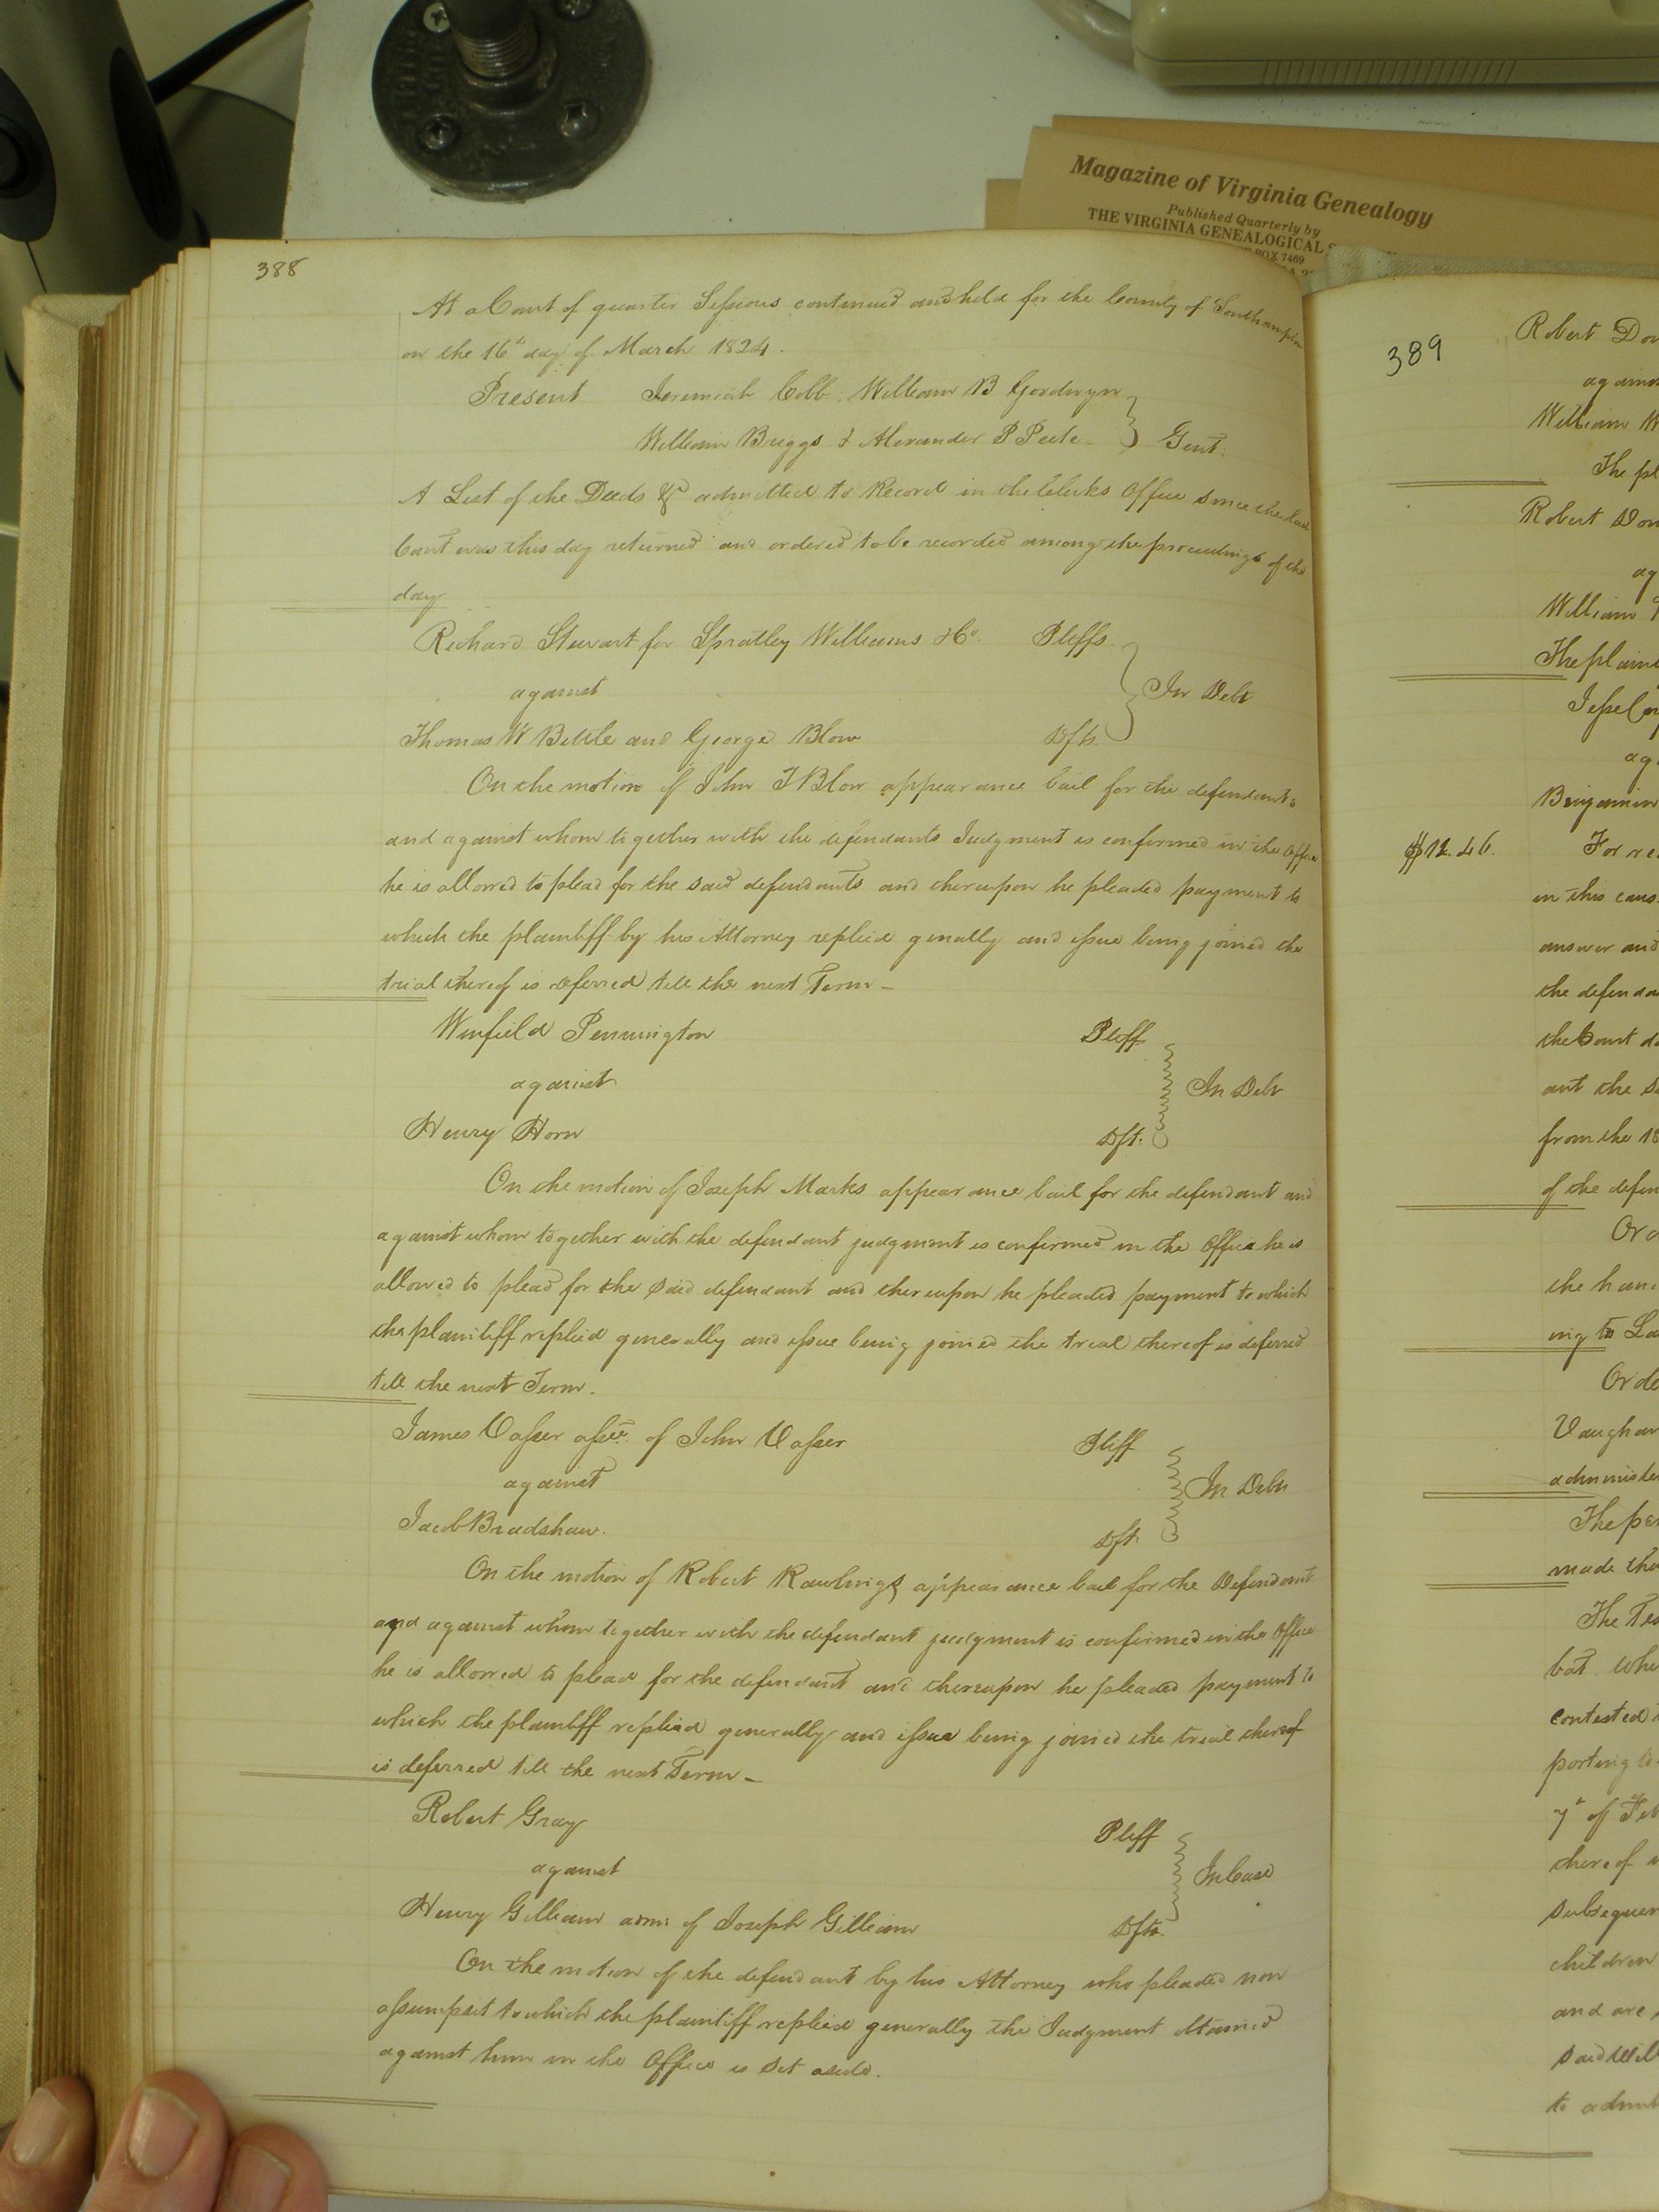 Magazine of Virginia Genealogy
Published Quarterly by
THE VIRGINIA GENEALOGICAL S
BOX 7469
388
At a Court of quarter Sessions continued and held for the County of Southampton
on the 16th day of March 1824.
Present Jeremiah Cobb, William B Goodwyn
William Briggs & Alexander P Peete Gent.
A List of the Deeds &c admitted to Record in the Clerks Office since the last
Court was this day returned and ordered to be recorded among the proceedings of the
day
Richard Stewart for Spratley Williams & Co. Pltffs
against In Debt
Thomas W Bittle and George Blow Dfts.
On the motion of John T Blow appearance bail for the defendants
and against whom together with the defendants Judgment is confirmed in the Office
he is allowed to plead for the said defendants and thereupon he pleaded payment to
which the plaintiff by his Attorney replied genally and issue being joined the
trial thereof is deferred till the next Term -
Winfield Pennington Pltff
against In Debt
Henry Horn Dft.
On the motion of Joseph Marks appearance bail for the defendant and
against whom together with the defendant judgment is confirmed in the Office he is
allowed to plead for the said defendant and thereupon he pleaded payment to which
the plaintiff replied generally and issue being joined the trial thereof is deferred
till the next Term.
James Vasser assee. of John Vasser Pltff
against In Debt
Jacob Bradshaw. Dft.
On the motion of Robert Rawlings appearance bail for the Defendant
and against whom together with the defendant judgment is confirmed in the Office
he is allowed to plead for the defendant and thereupon he pleaded payment to
which the plaintiff replied generally and issue being joined the trial thereof
is deferred till the next Term -
Robert Gray Pltff
against In Case
Henry Gilliam adm. of Joseph Gilliam Dft.
On the motion of the defendant by his Attorney who pleaded non
assumpsit to which the plaintiff replied generally the Judgment obtained
against him in the Office is set aside.
389
Robert Dow
against
William W
The pl
Robert Dow
ag
William
The plain
Jesse
ag.
Benjamin
$12.46. For re
in this caus
answer and
the defenda
the Court d
ant the s
from the 18
of the defen
Ord
the han
ing to La
Orde
Vaughan
administe
The per
made the
The Tes
bat whe
contested
porting
7th of Feb
thereof
subsequen
children
and are
said Wil
to admit